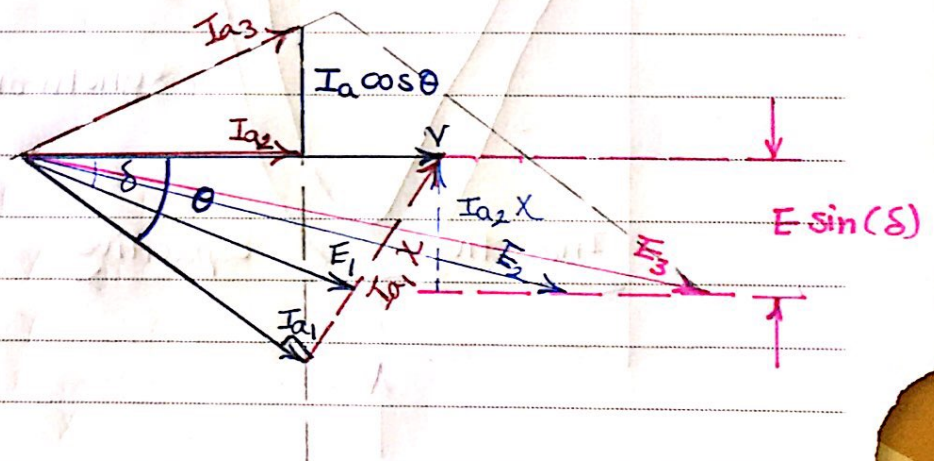 Ia3
Ia cosθ
Ia2
V
δ
θ
Ia2 X
E sin(δ)
E1
X
E2
E3
Ia1
Ia1